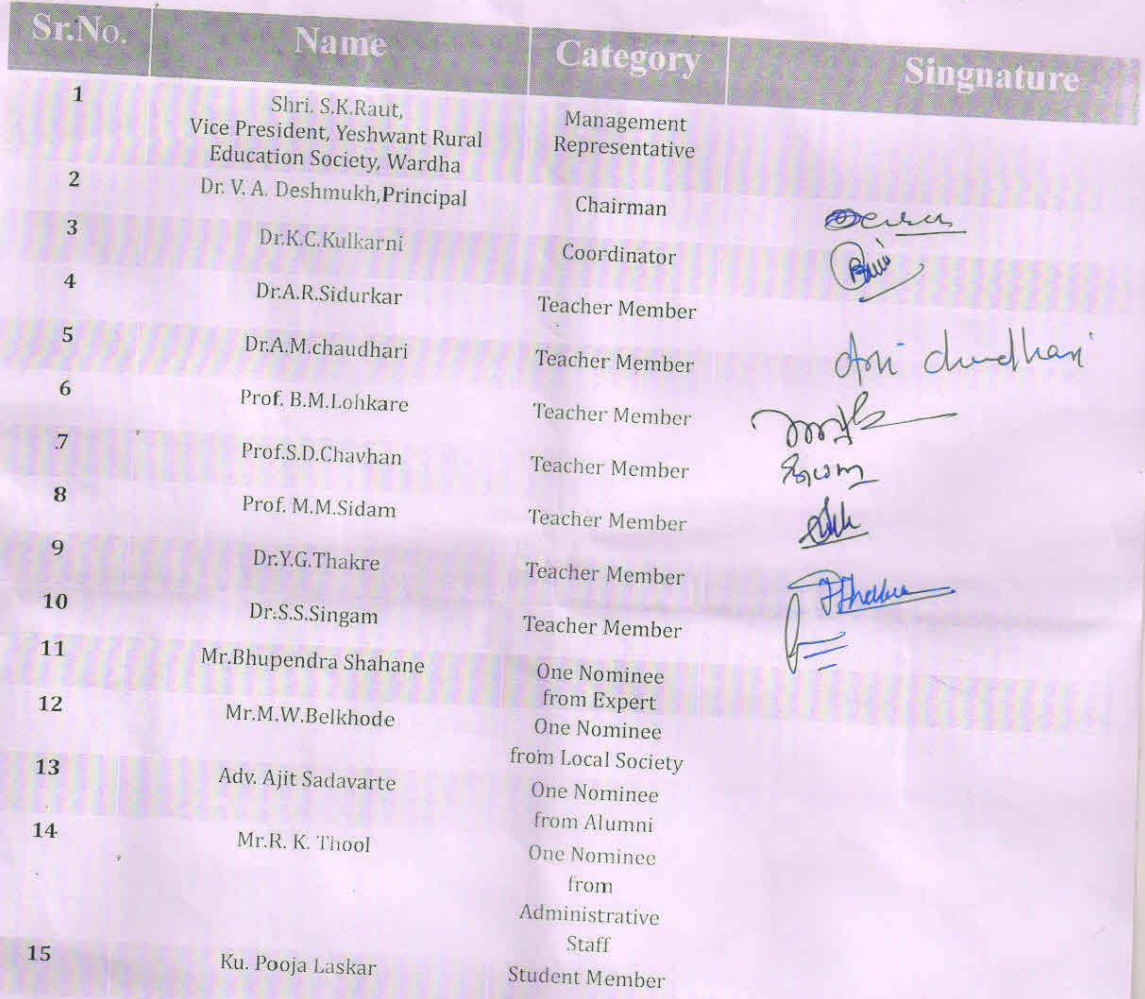 Sr.No. Name Category Singnature
1 Shri. S.K.Raut, Management
Vice President, Yeshwant Rural Representative
Education Society, Wardha
2 Dr. V. A. Deshmukh,Principal Chairman
3 Dr.K.C.Kulkarni Coordinator
4 Dr.A.R.Sidurkar Teacher Member
5 Dr.A.M.chaudhari Teacher Member
6 Prof. B.M.Lohkare Teacher Member
7 Prof.S.D.Chavhan Teacher Member
8 Prof. M.M.Sidam Teacher Member
9 Dr.Y.G.Thakre Teacher Member
10 Dr.S.S.Singam Teacher Member
11 Mr.Bhupendra Shahane One Nominee
from Expert
12 Mr.M.W.Belkhode One Nominee
from Local Society
13 Adv. Ajit Sadavarte One Nominee
from Alumni
14 Mr.R. K. Thool One Nominee
from
Administrative
Staff
15 Ku. Pooja Laskar Student Member